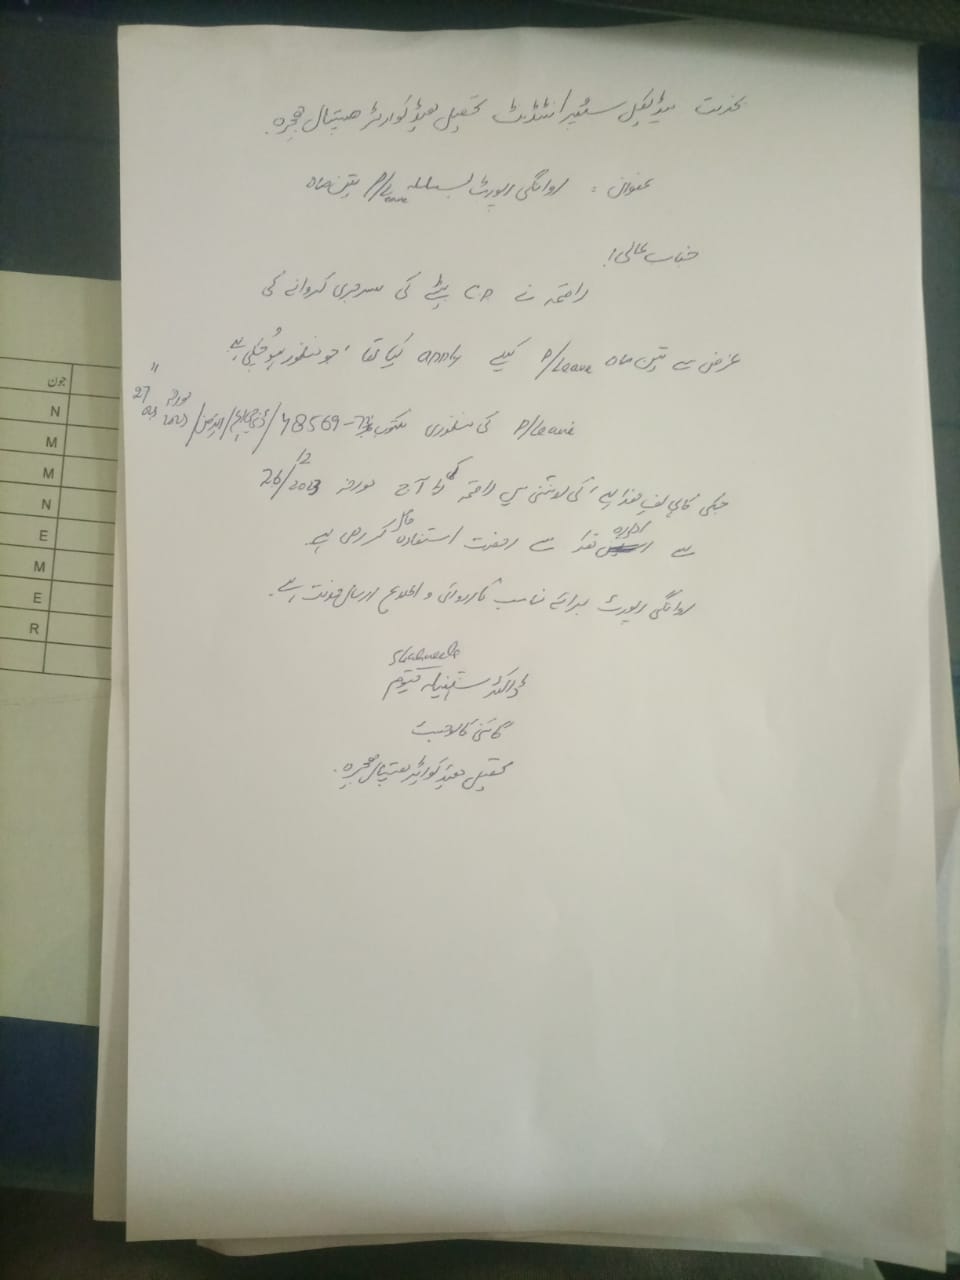 بخدمت میڈیکل سپرانٹنڈنٹ تحصیل ہیڈ کوارٹر ہسپتال ہجیرہ۔
عنوان : روانگی رپورٹ بسلسلہ P/Leave تین ماہ
جناب عالی!
راقمہ نے CP بیٹے کی سرجری کروانے کی
غرض سے تین ماہ P/Leave کیلیے apply کیا تھا، جو منظور ہو چکی ہے
P/Leave کی منظوری مکتوب نمبر 78569-72 مورخہ 27 2023
جسکی کاپی لف ھذا ہے، کی روشنی میں راقمہ آج مورخہ 26/12/2023
سے ادارہ ھذا سے رخصت استفادہ کر رہی ہے
روانگی رپورٹ برائے مناسب کاروائی و اطلاع ارسال خدمت ہے۔
ڈاکٹر قیوم
گائنی کالوجسٹ
تحصیل ہیڈ کوارٹر ہسپتال ہجیرہ۔
جون
N
M
M
N
E
M
E
R